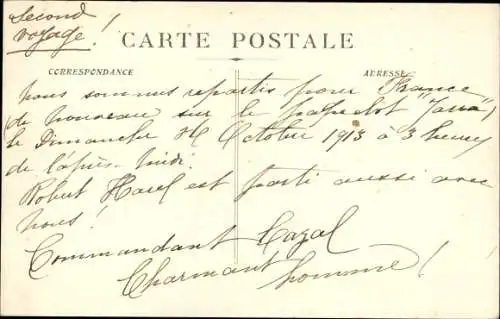 Second
voyage!
CARTE POSTALE
CORRESPONDANCE
ADRESSE
Nous sommes repartis pour France
(de nouveau sur le paquebot "Java")
le Dimanche Octobre 1913 à 3 heures
de l'après-midi.
Robert Harel est parti aussi avec
nous!
Commandant Cazal
Charmant homme!